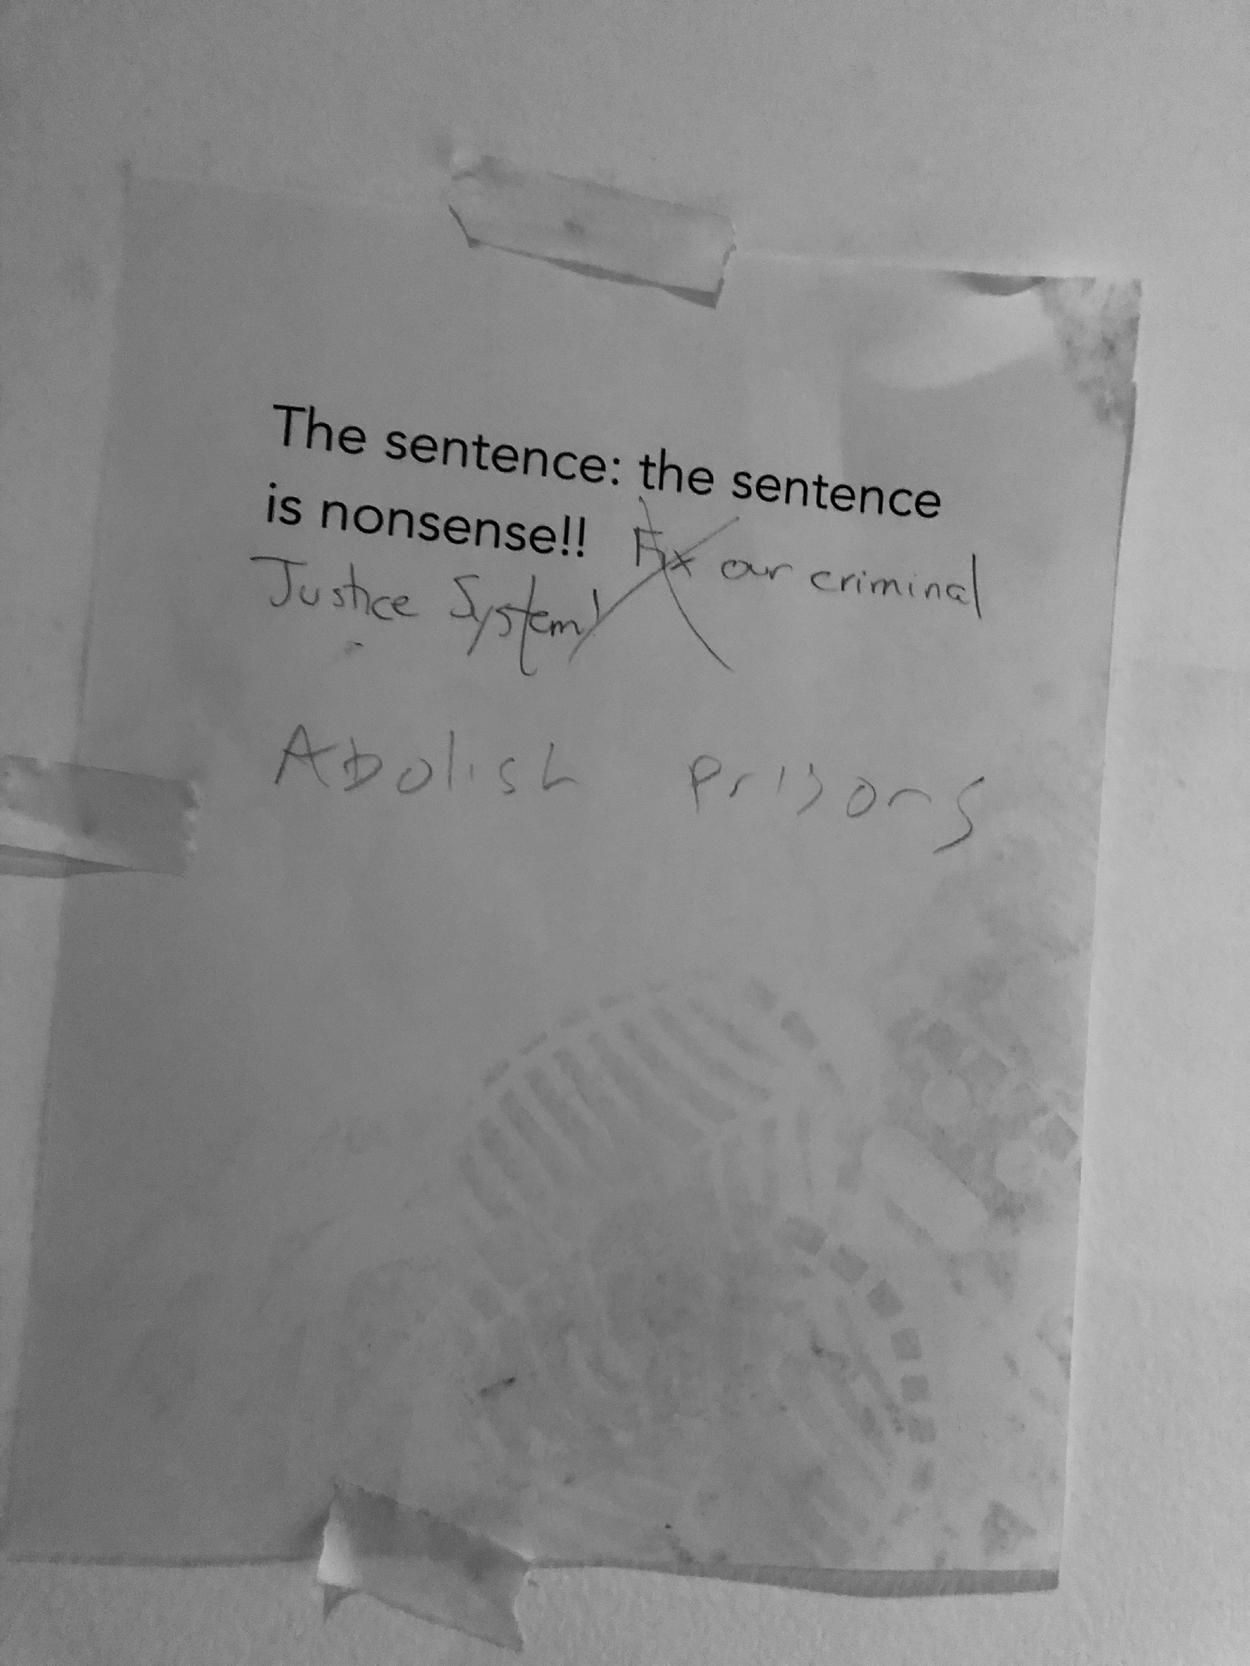 The sentence: the sentence
is nonsense!! Fix our criminal
Justice System!
Abolish prisons